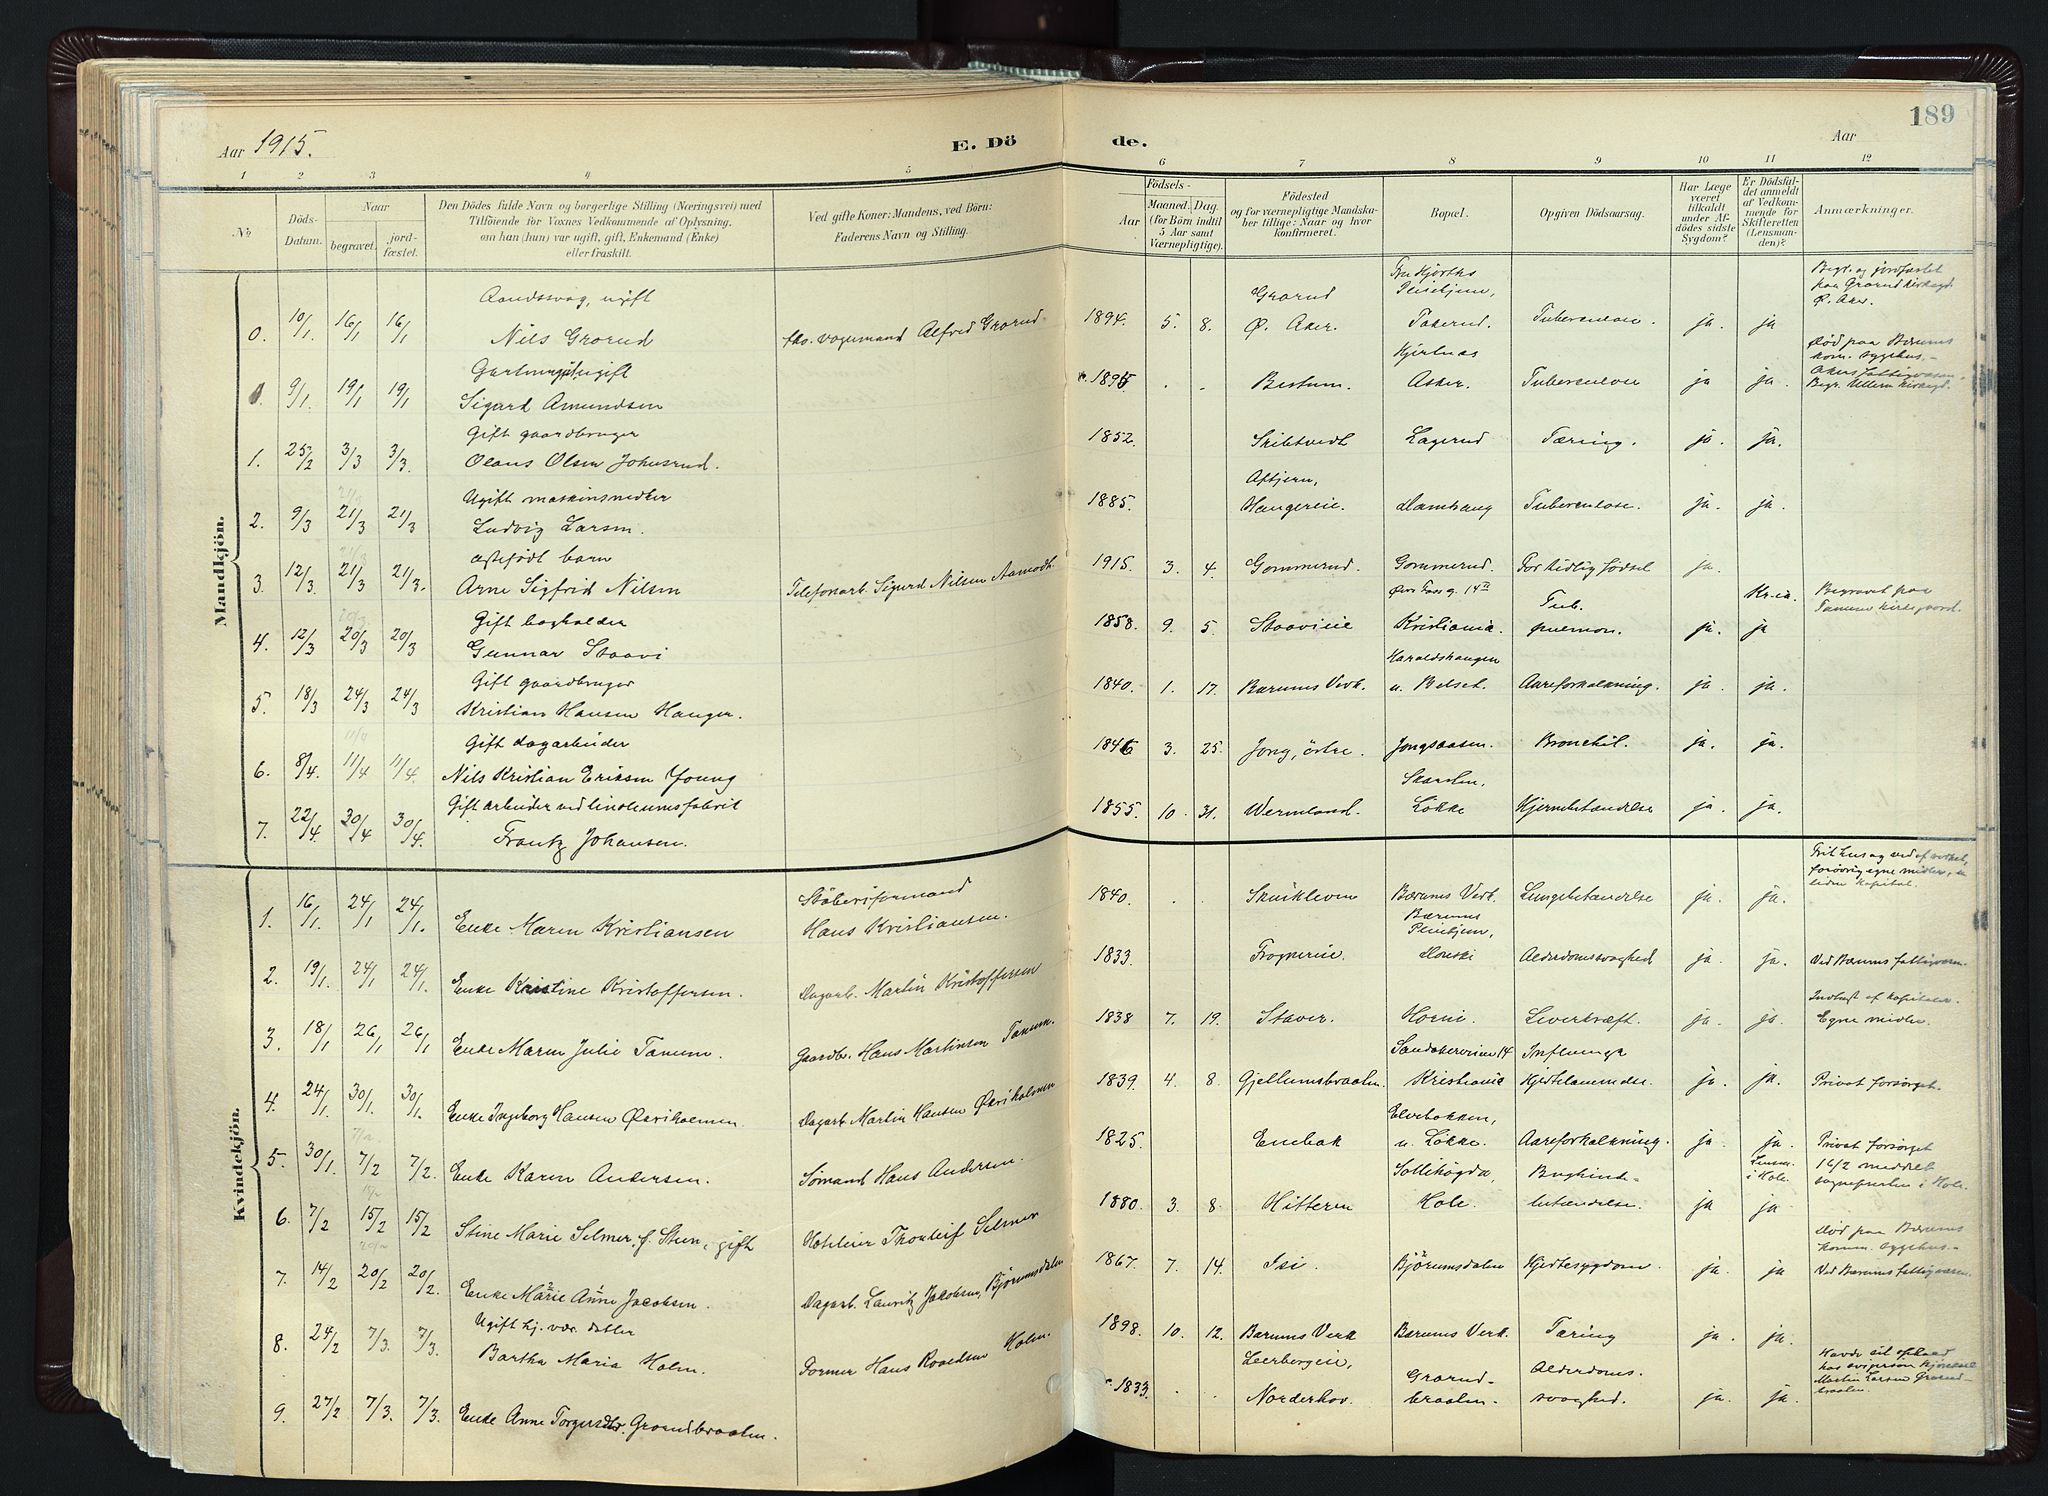 Aar 1915.
E. Dö
de.
189
Aar
1 2 3 4 5 6 7 8 9 10 11 12
No.
Döds-Datum.
Naar
begravet.
jord-fæstet.
Den Dödes fulde Navn og borgerlige Stilling (Næringsvei) med
Tilföiende for Voxnes Vedkommende af Oplysning,
om han (hun) var ugift, gift, Enkemand (Enke)
eller fraskilt.
Ved gifte Koner: Mandens, ved Börn:
Faderens Navn og Stilling.
Födsels-
Aar
Maaned. Dag.
(for Börn indtil
5 Aar samt
Værnepligtige).
Födested
og for værnepligtige Mandska-
ber tillige: Naar og hvor
konfirmeret.
Bopæl.
Opgiven Dödsaarsag.
Har Læge
været
tilkaldt
under Af-
dödes sidste
Sygdom?
Er Dödsfal-
det anmeldt
af Vedkom-
mende for
Skifteretten
(Lensman-
den)?
Anmærkninger.
Mandkjön.
0. 10/1 16/1 16/1 ugift
Nils Grorud Alfred Grorud 1894. 5. 8. Grorud Ø. Aker. Tuberculose. ja. ja Begr. og jordfæstet paa Grorud kirkegd. Ø. Aker.
9/1. 19/1 19/1 ugift
Sigurd Amundsen 1895 . . Bestum. Asker. Tuberculose ja ja. Død paa Bærums kom. sygehus.- Begr. Ullern kirkegd.
1. 25/2 3/3 3/3. Gift gaardbruger
Olaus Olsen Johnsrud. 1852. Skibtvedt Lagerud Tæring. ja. ja.
2. 9/3 21/3 21/3 Ugift maskinsmedler
Ludvig Larsen. 1885. Haugereie. Tuberculose. ja. ja.
3. 12/3. 21/3 21/3. barn
Arne Sigfrid Nilsen Telefonarb. Sigurd Nilsen Aamodt. 1915. 3. 4. Gommerud. Gommerud. For tidlig födsel ja.
4. 12/3 20/3 20/3 Gift bogholder
Gunnar Staavi 1858. 9. 5. Staavieie Kristiania. Tub. pneumon. ja. Kr.ia. ja Begravet paa Tanum kirkegaard.
5. 18/3 24/3 24/3 Gift gaardbruger
Kristian Hansen Hauger. 1840. 1. 17. Bærums Verk. Haraldshaugen u. Belset. Aareforkalkning. ja. ja.
6. 8/4. 11/4 11/4. Gift dagarbeider
Nils Kristian Eriksen Young 1846 3. 25. Jong, östre. Jongsaasen. Bronchit. ja. ja.
7. 22/4. 30/4 30/4. Gift arbeider ved linoleumsfabrik
Frantz Johansen. 1855. 10. 31. Wermland. Løkke Hjernebetændelse ja. ja.
Kvindekjön.
1. 16/1. 24/1 24/1. Enke Maren Kristiansen Støberiformand Hans Kristiansen. 1840. . . Skuikleven Bærums Verk. Lungebetændelse ja. ja.
2. 19/1. 24/1 24/1. Enke Kristine Kristoffersen. Dagarb. Martin Kristoffersen 1833. Frognereie. Bærums Pleiehjem, Alderdomssvaghed ja. ja. Ved Bærums fattigvæsen.
3. 18/1 26/1 26/1 Enke Maren Julie Tanum. Gaardbr. Hans Martinsen Tanum. 1838 7. 19. Staver. Leverkræft. ja. ja. Egne midler.
4. 24/1. 30/1. 30/1. Enke Ingeborg Hansen Øveiholmen. Dagarb. Martin Hansen Øveiholmen 1839. 4. 8. Gjellumsbraaten. Sandakerveien 14 Kristiania Influenza Hjertelammelse. ja. ja. Privat forsørget.
5. 30/1. 7/2 7/2. Enke Karen Andersen. Sømand Hans Andersen. 1825. Enebak Elvebakken, u. Løkke. Aareforkalkning. ja. ja. Privat forsørget
6. 7/2 15/2 15/2 Stine Marie Selmer, f. Steen, gift Hoteleier Thorleif Selmer 1880. 3. 8. Hitteren Sollihøgda, Hole. Bughinde-betændelse. ja Lensm. i Hole. ja 16/2 meddelt sognepresten i Hole.
7. 14/2 20/2 20/2. Enke Marie Anne Jacobsen. Dagarb. Lauritz Jakobsen, Bjørumsdalen 1867. 7. 14. Isi. Bjørumsdalen Hjertesygdom. ja. ja Død paa Bærums komm. sygehus.- Ved Bærums fattigvæsen.
8. 24/2 7/3. 7/3. Ugift hj. vær. datter
Bertha Maria Holm. Former Hans Roaldsen Holm. 1898. 10. 12. Bærums Verk Bærums Verk. Tæring ja. ja.
9. 27/2 7/3. 7/3. Enke Anne Torgersdtr. Grorudbraaten. 1833. . . Norderhov. Grorud-braaten. Alderdoms-svaghed. ja. ja. Martin Larsen Grorud-braaten.